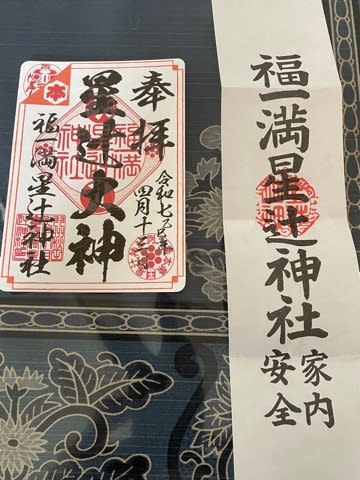 奉拝
令和七年
四月十
星辻大神
福一満星辻神社
本
福一満星辻神社
家内
安全